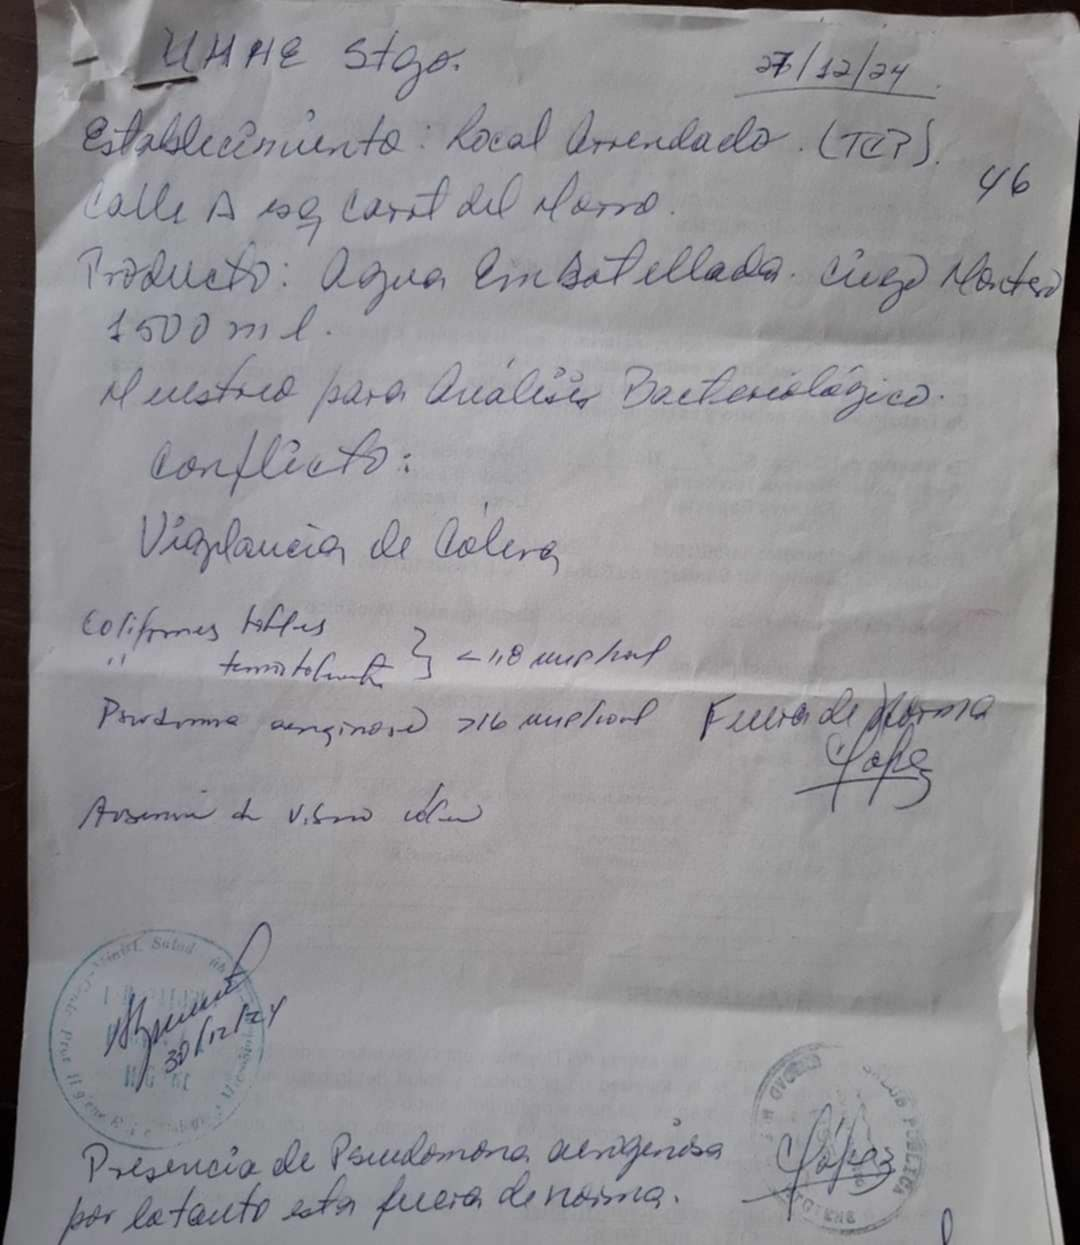 UHHE Stgo.
27/12/24
Establecimiento: Local Arrendado. (TCP).
46
Calle A esq Carret del Morro.
Producto: Agua Embotellada. Ciego Montero
1500 ml.
Muestreo para Análisis Bacteriológico.
Conflicto:
Vigilancia de Cólera
Coliformes totales
" termotolerantes } < 1,8 nmp/100ml
Pseudomona aeruginosa >16 nmp/100ml Fuera de Norma
López
Ausencia de Vibrio cólera
Minist. Salud
30/12/24
SALUD PUBLICA
Presencia de Pseudomona aeruginosa
López
por lo tanto esta fuera de norma.